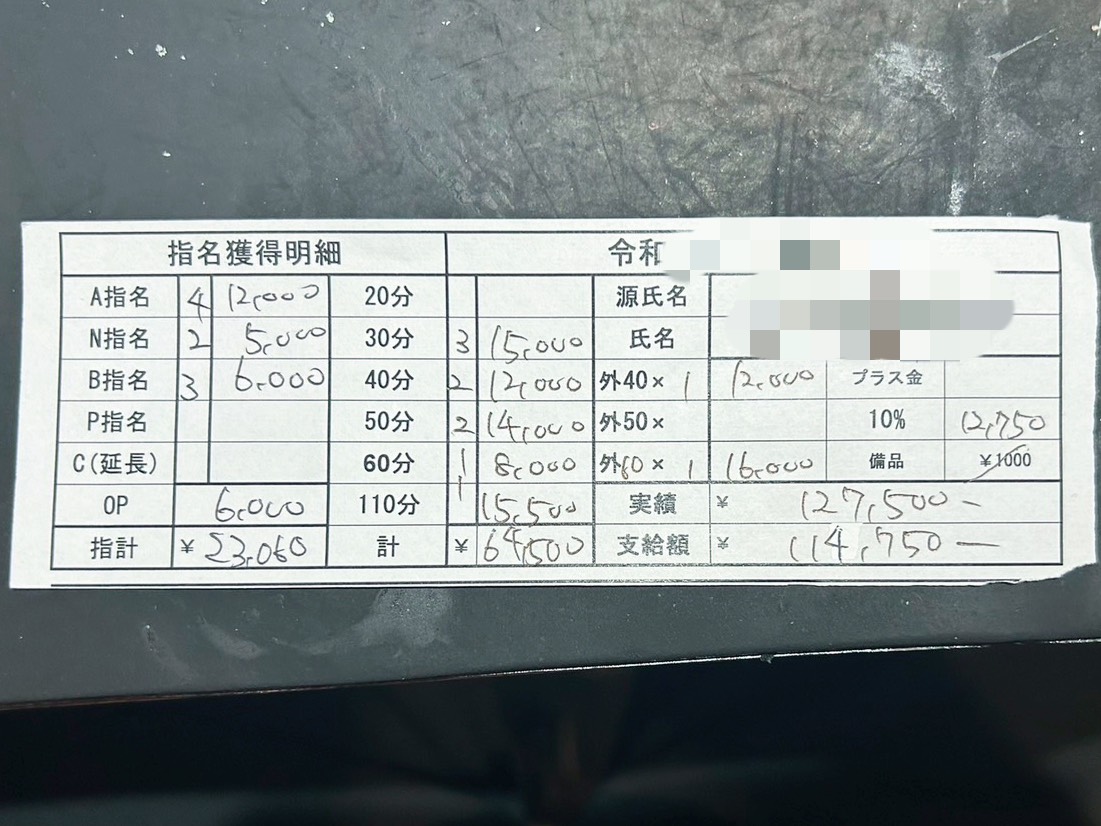 指名獲得明細 令和
A指名 4 12,000 20分 源氏名
N指名 2 5,000 30分 3 15,000 氏名
B指名 3 6,000 40分 2 12,000 外40× 1 12,000 プラス金
P指名 50分 2 14,000 外50× 10% 12,750
C(延長) 60分 1 8,000 外60× 1 16,000 備品 ¥1000
OP 6,000 110分 1 15,500 実績 ¥ 127,500-
指計 ¥ 23,000 計 ¥ 64,500 支給額 ¥ 114,750-